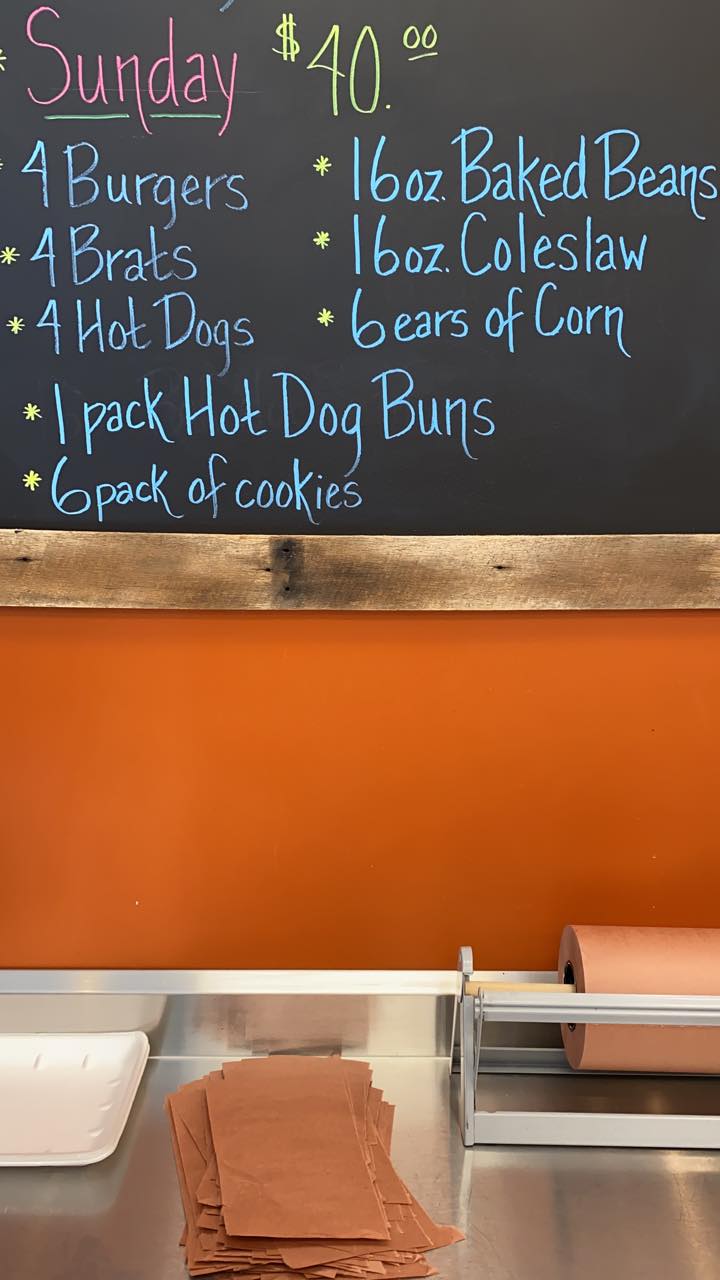 * Sunday $40.00
* 4 Burgers
* 4 Brats
* 4 Hot Dogs
* 16oz. Baked Beans
* 16oz. Coleslaw
* 6 ears of Corn
* 1 pack Hot Dog Buns
* 6 pack of cookies